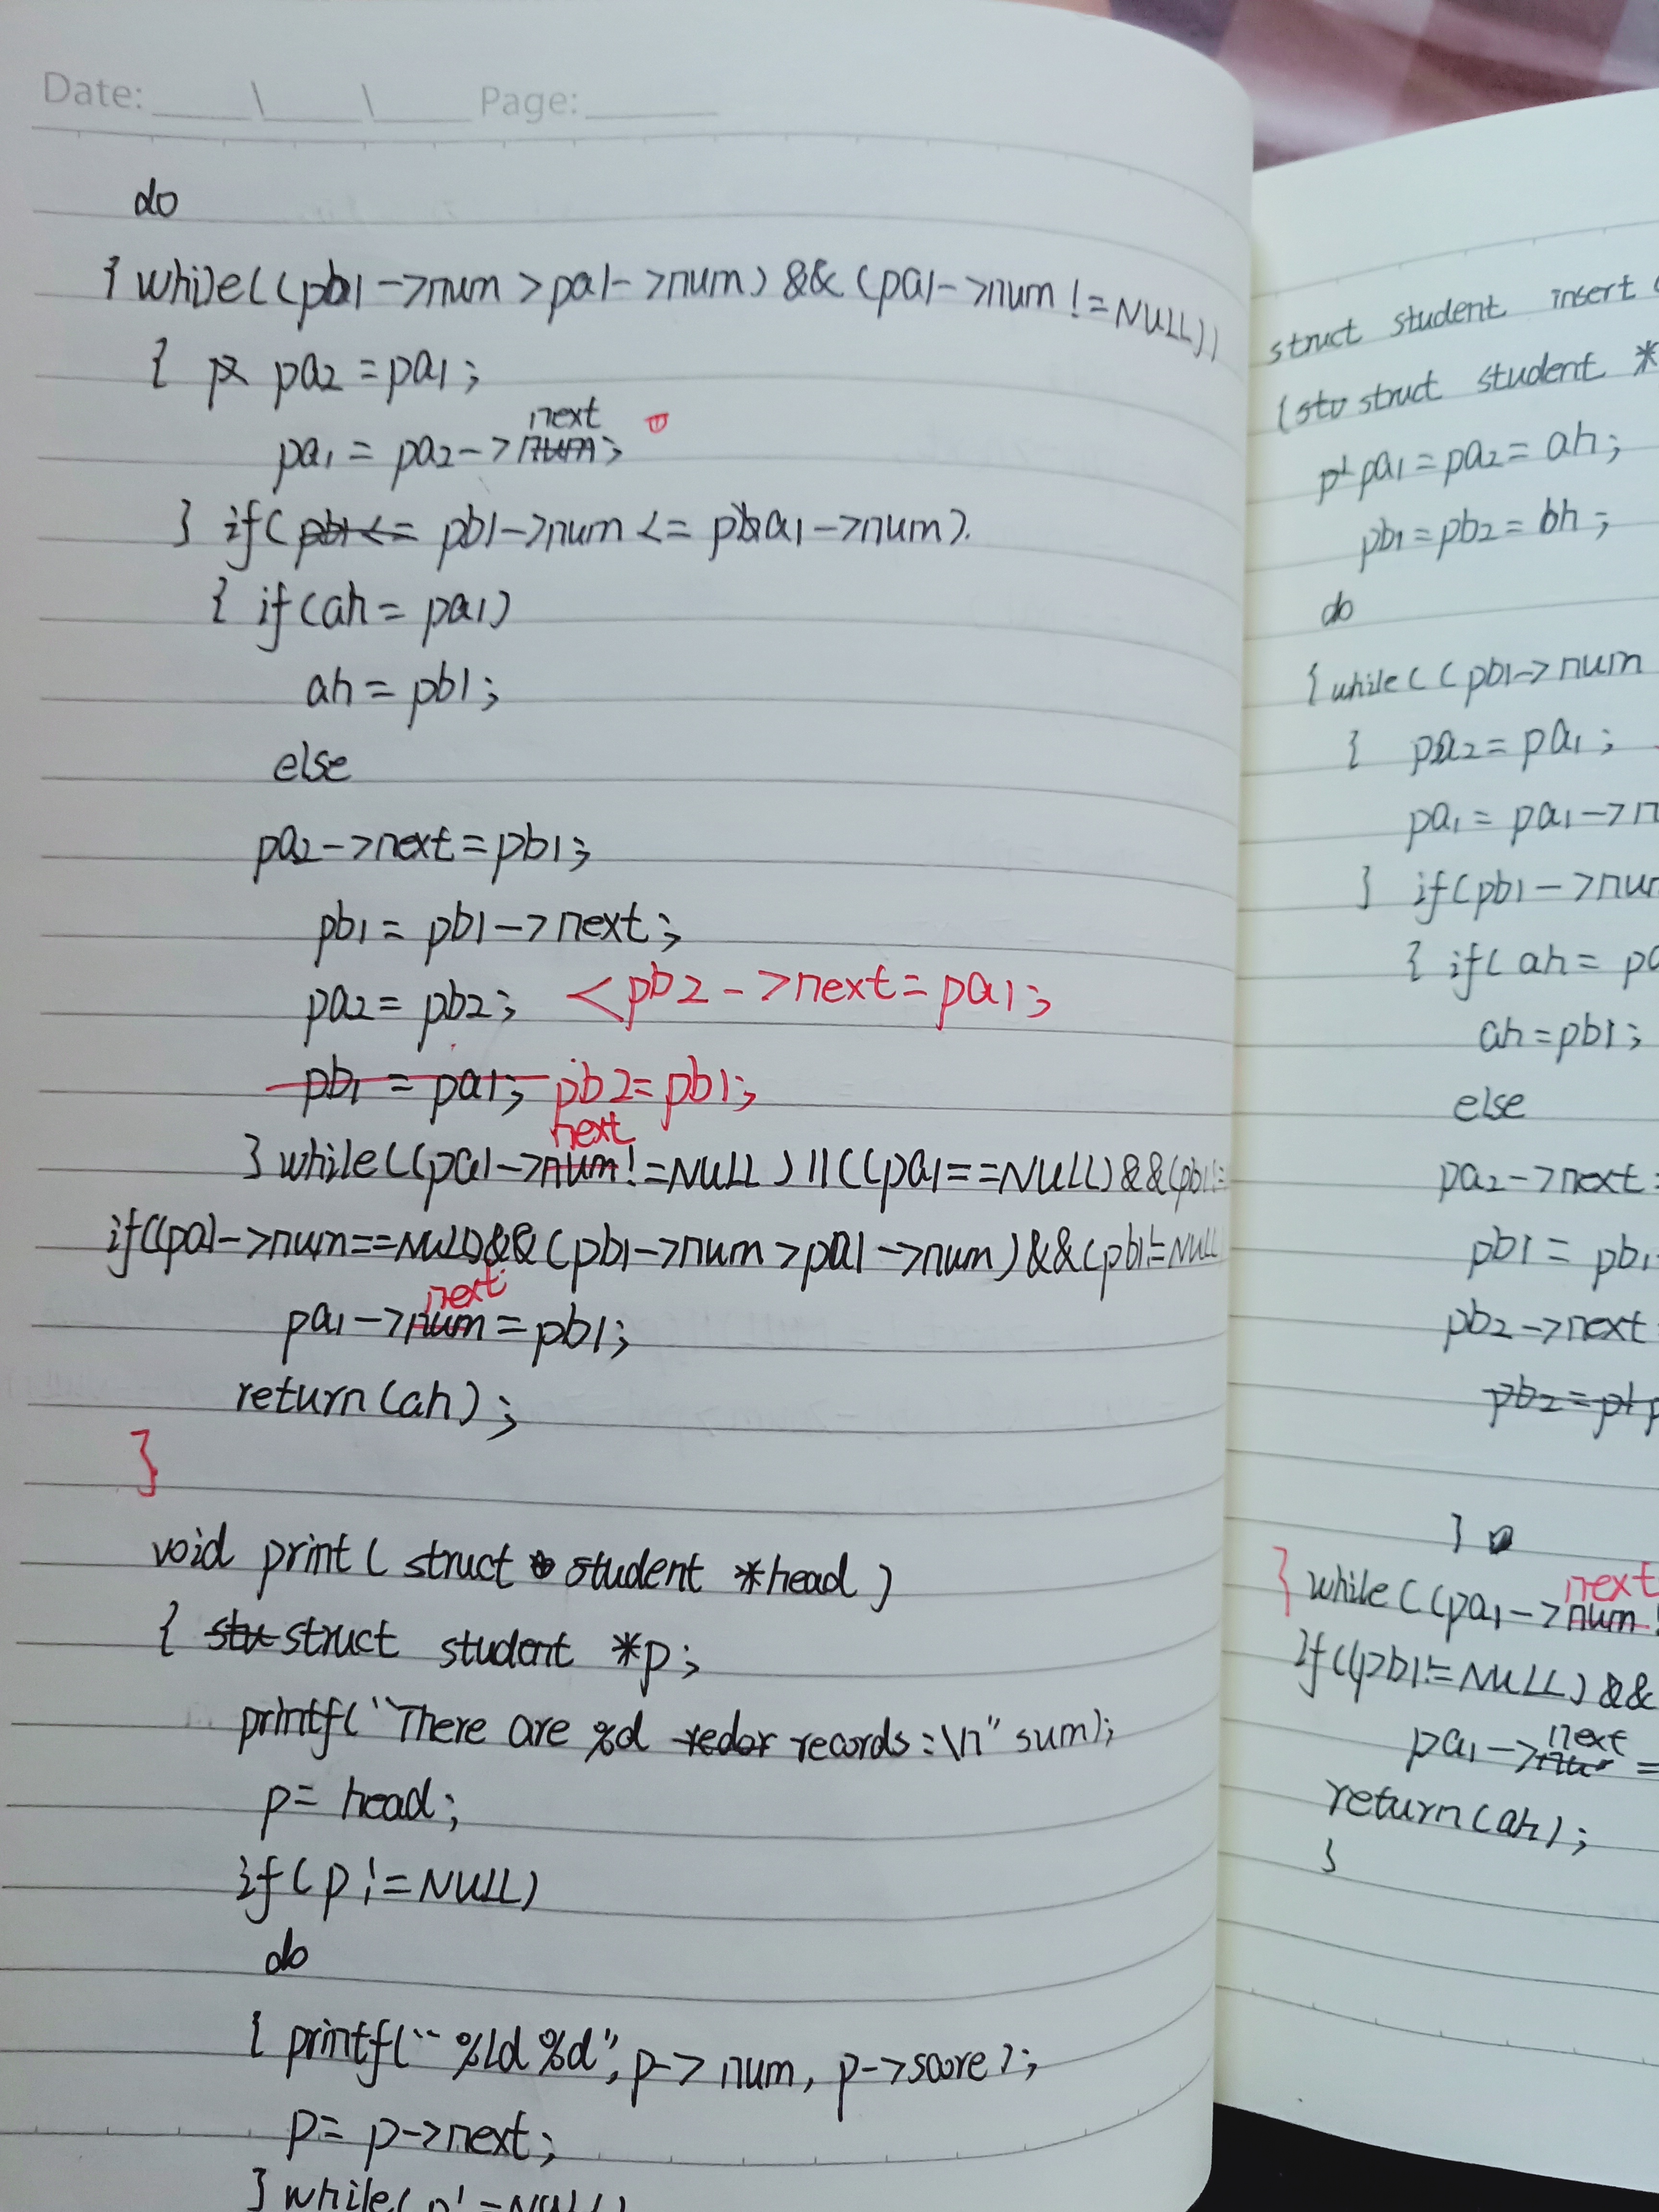 Date: Page:
do
{ while((pb1->num > pa1->num) && (pa1->num != NULL))
{ pa2 = pa1;
next
pa1 = pa2->num;
} if( pb1 <= pb1->num <= pba1->num).
{ if(ah = pa1)
ah = pb1;
else
pa2->next = pb1;
pb1 = pb1->next;
pa2 = pb2; < pb2->next = pa1;
pb1 = pa1; pb2 = pb1;
next
} while((pa1->num != NULL) || ((pa1 == NULL) && (pb1 !=
if((pa1->num == NULL) && (pb1->num > pa1->num) && (pb1 != NULL
next
pa1->num = pb1;
return(ah);
}
void print( struct student *head )
{ stu struct student *p;
printf("There are %d redor records:\n" sum);
p = head;
if( p != NULL)
do
{ printf("%ld %d", p->num, p->score);
p = p->next;
} while( p != NULL)
struct student insert
(stu struct student *
pa1 = pa2 = ah;
pb1 = pb2 = bh;
do
{ while( ( pb1->num
{ pa2 = pa1;
pa1 = pa1->n
} if(pb1->num
{ if( ah = pa
ah = pb1;
else
pa2->next =
pb1 = pb1
pb2->next
pb2 = p1 p
}
next
} while((pa1->num !
if((pb1 != NULL) &&
next
pa1-> =
return(ah);
}